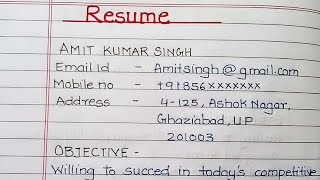 Resume
AMIT KUMAR SINGH
Email Id - Amitsingh@gmail.com
Mobile no - +91856xxxxxxx
Address - 4-125, Ashok Nagar,
Ghaziabad, U.P
201003
OBJECTIVE -
Willing to succed in today's competitive